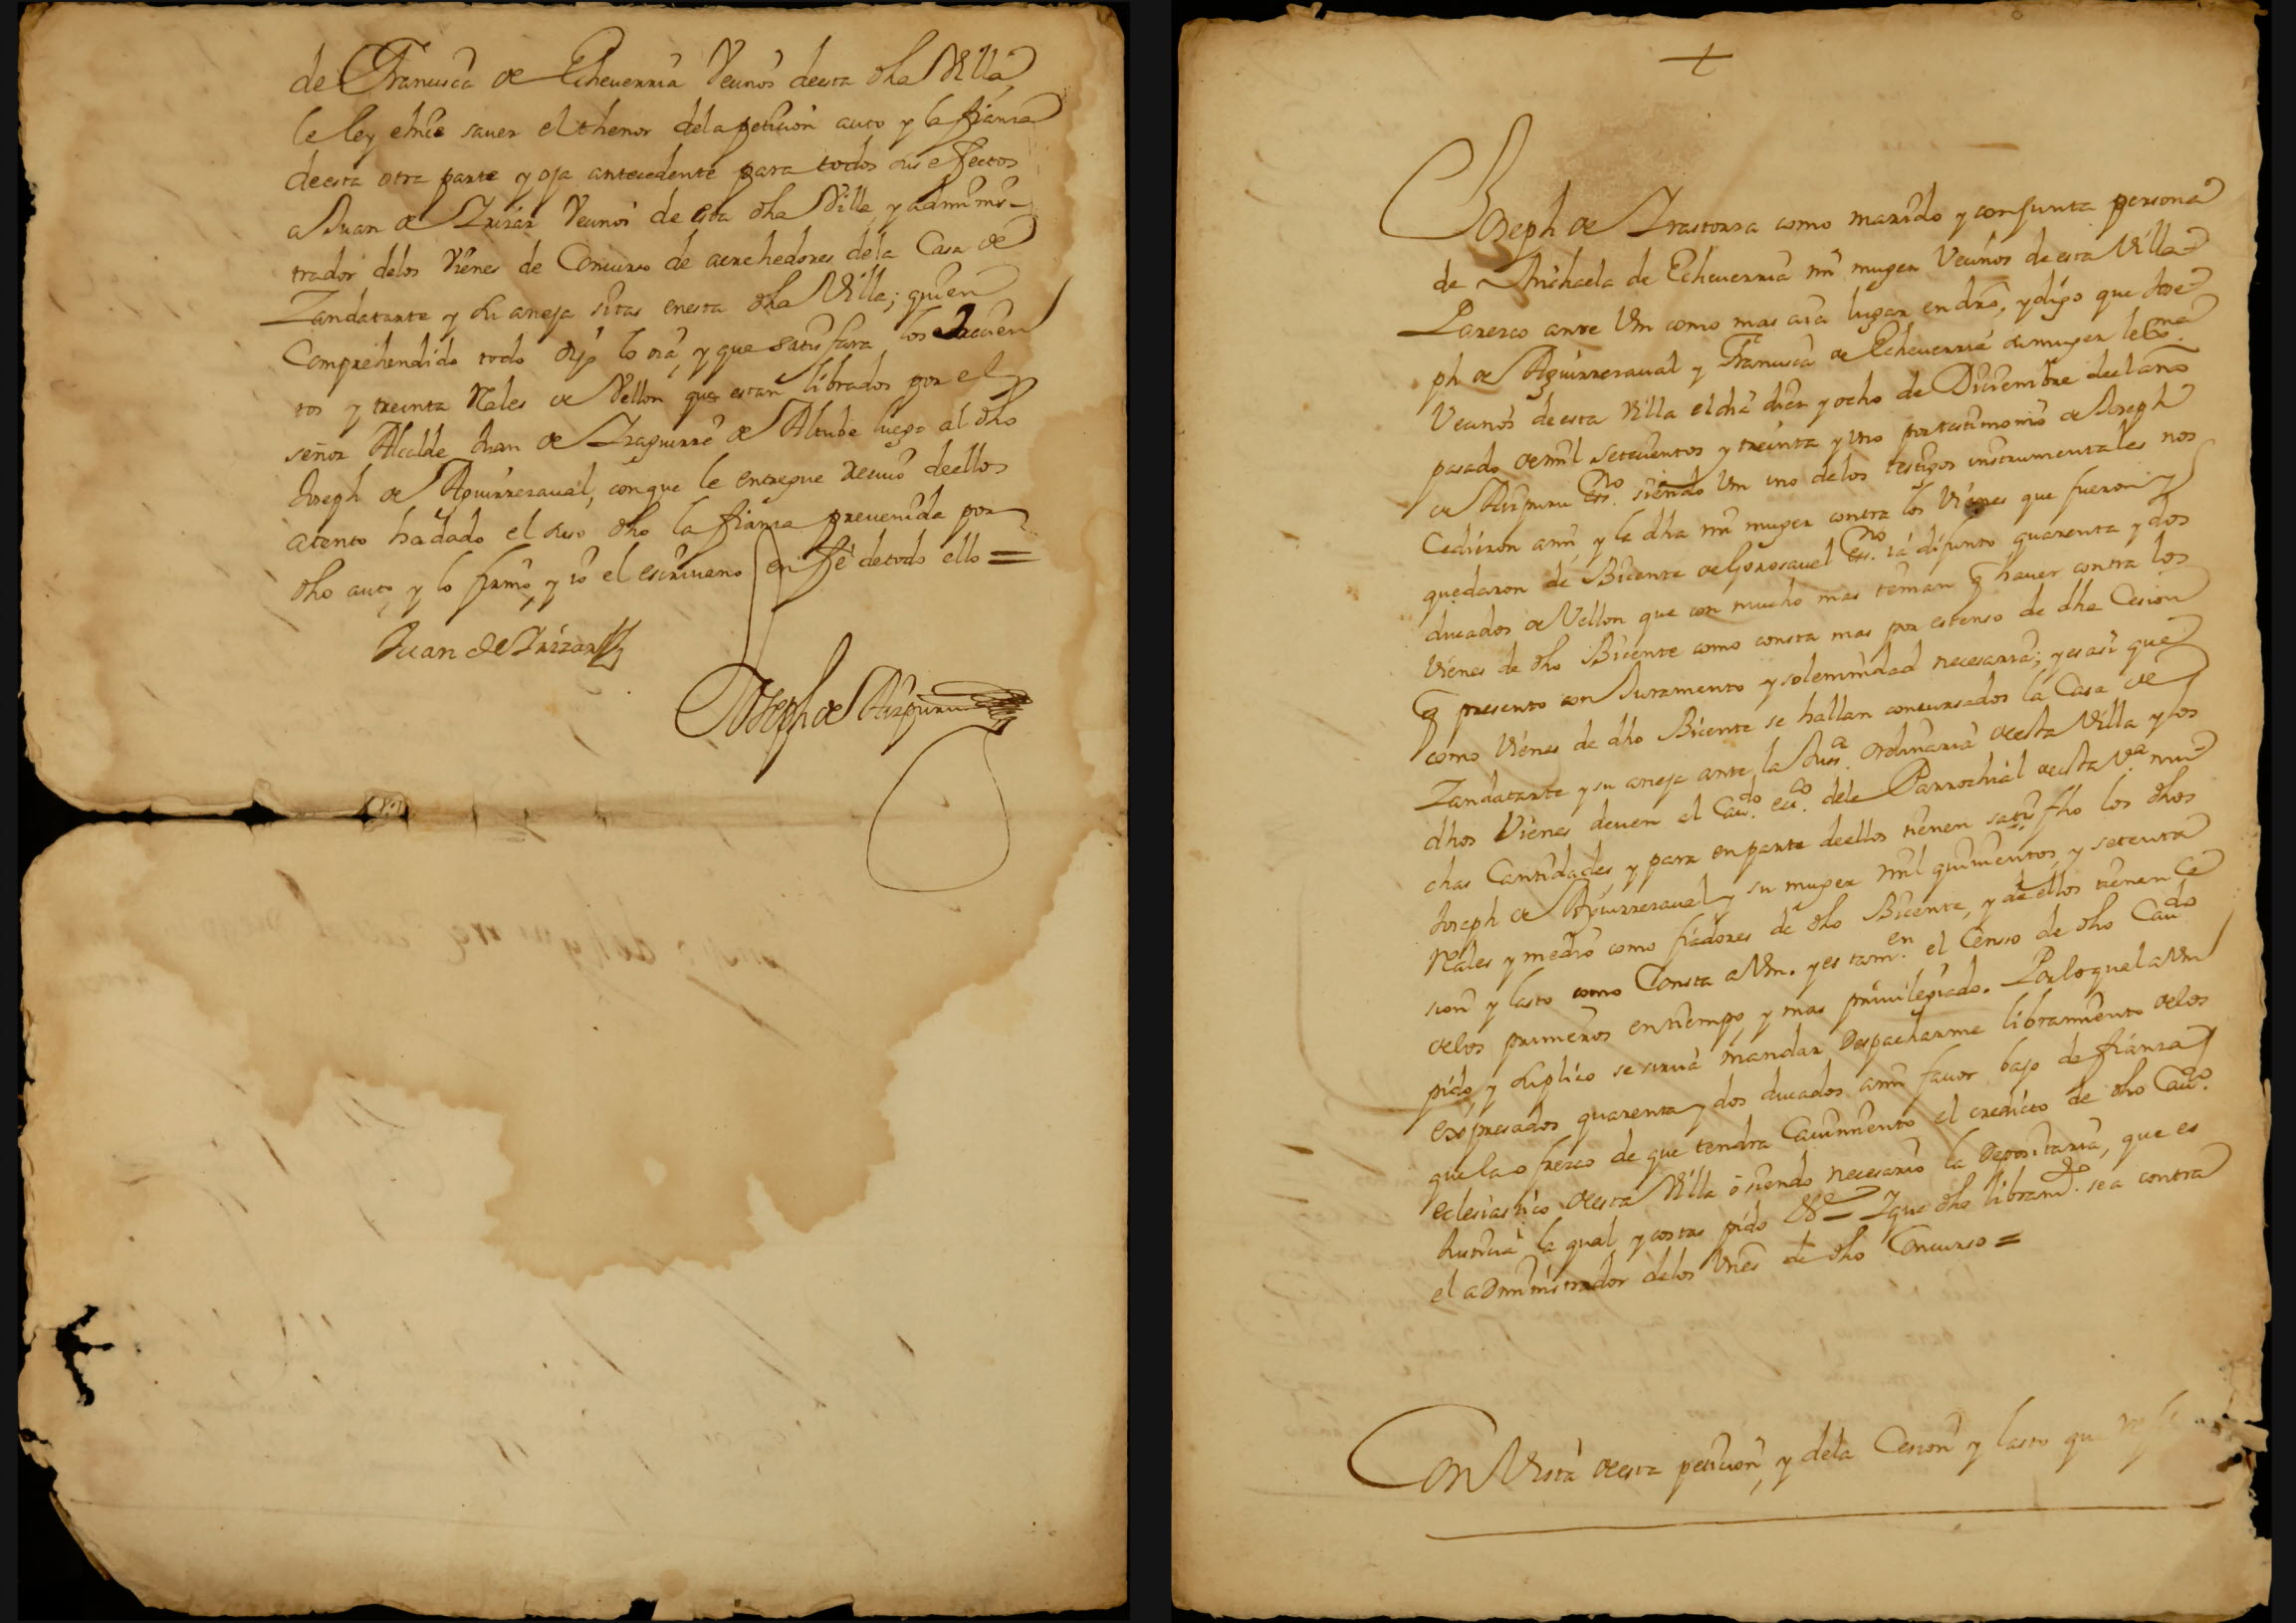 de Francisca de Echeuerria Veçinos de esta dha Villa,
le ley e hice sauer el thenor de la petiçion auto y la fianza
de esta otra parte y oja antecedente para todos sus efectos
a Juan de Yrizar Veçino de esta dha Villa, y adminis-
trador delos Vienes de Concurso de acrehedores dela Casa de
Zandatarte y su aneja sitas enesta dha Villa; quien
Comprehendido todo dijo lo oia, y que satisfara los
tos y treinta Rales de Vellon que estan librados por el
señor Alcalde Juan de Yraguirre de Altube luego al dho
Joseph de Aguirresaual, conque le entregue reciuo de ellos
atento ha dado el suso dho la fianza preuenida por
dho auto, y lo firmo, y io el escriuano en fè de todo ello =
Juan de Yrizar
Joseph de Aizpuru
+
Joseph de Yrastorza como marido y conjunta persona
de Michaela de Echeuerria mi muger Veçinos de esta Villa
Parezco ante Vm como mas aia lugar en dro, y digo que Jose-
ph de Aguirresaual y Franca de Echeuerria su muger lexma
Veçinos de esta Villa el dia diez y ocho de Diziembre del año
pasado de mil setecientos y treinta y uno por testimonio de Joseph
de Aizpuru essno. siendo Vm uno delos testigos instrumentales nos
Cedieron a mi, y la dha mi muger contra los Vienes que fueron y
quedaron de Bicente de Gorosauel essno. ia difunto quarenta y dos
ducados de Vellon que con mucho mas tenian q hauer contra los
Vienes de dho Bicente como consta mas por estenso de dha Cesion
q presento con Juramento y solemnidad necesaria; y es asi que
como Vienes de dho Bicente se hallan concursados la Casa de
Zandatarte y su aneja ante la Jusa. ordinaria de esta Villa y los
dhos Vienes deuen al Caudo. ecco. dela Parrochial de esta Va. mu-
chas Cantidades y para en parte de ellos tienen satisfho los dhos
Joseph de Aguirresaual y su muger mil quinientos y setenta
Rales y medio como fiadores de dho Bicente, y de ellos tienen Ce
sion y lasto como Consta a Vm. y es tamen. el Censo de dho Caudo
delos primeros en tiempo y mas priuilegiado. Por lo quel a Vm
pido, y suplico se sirua mandar despacharme libramiento delos
expresados quarenta y dos ducados a mi fauor bajo de fianza
que la ofrezco de que tendra Cauimiento el credicto de dho Caudo.
eclesiastico de esta Villa ò siendo necesario la depositaria, que es
Justicia la qual y costas pido Va = Y que dho libramto. sea contra
el administrador delos Vies de dho Concurso =
Con Vista de esta petiçion, y dela Cesion y lasto que